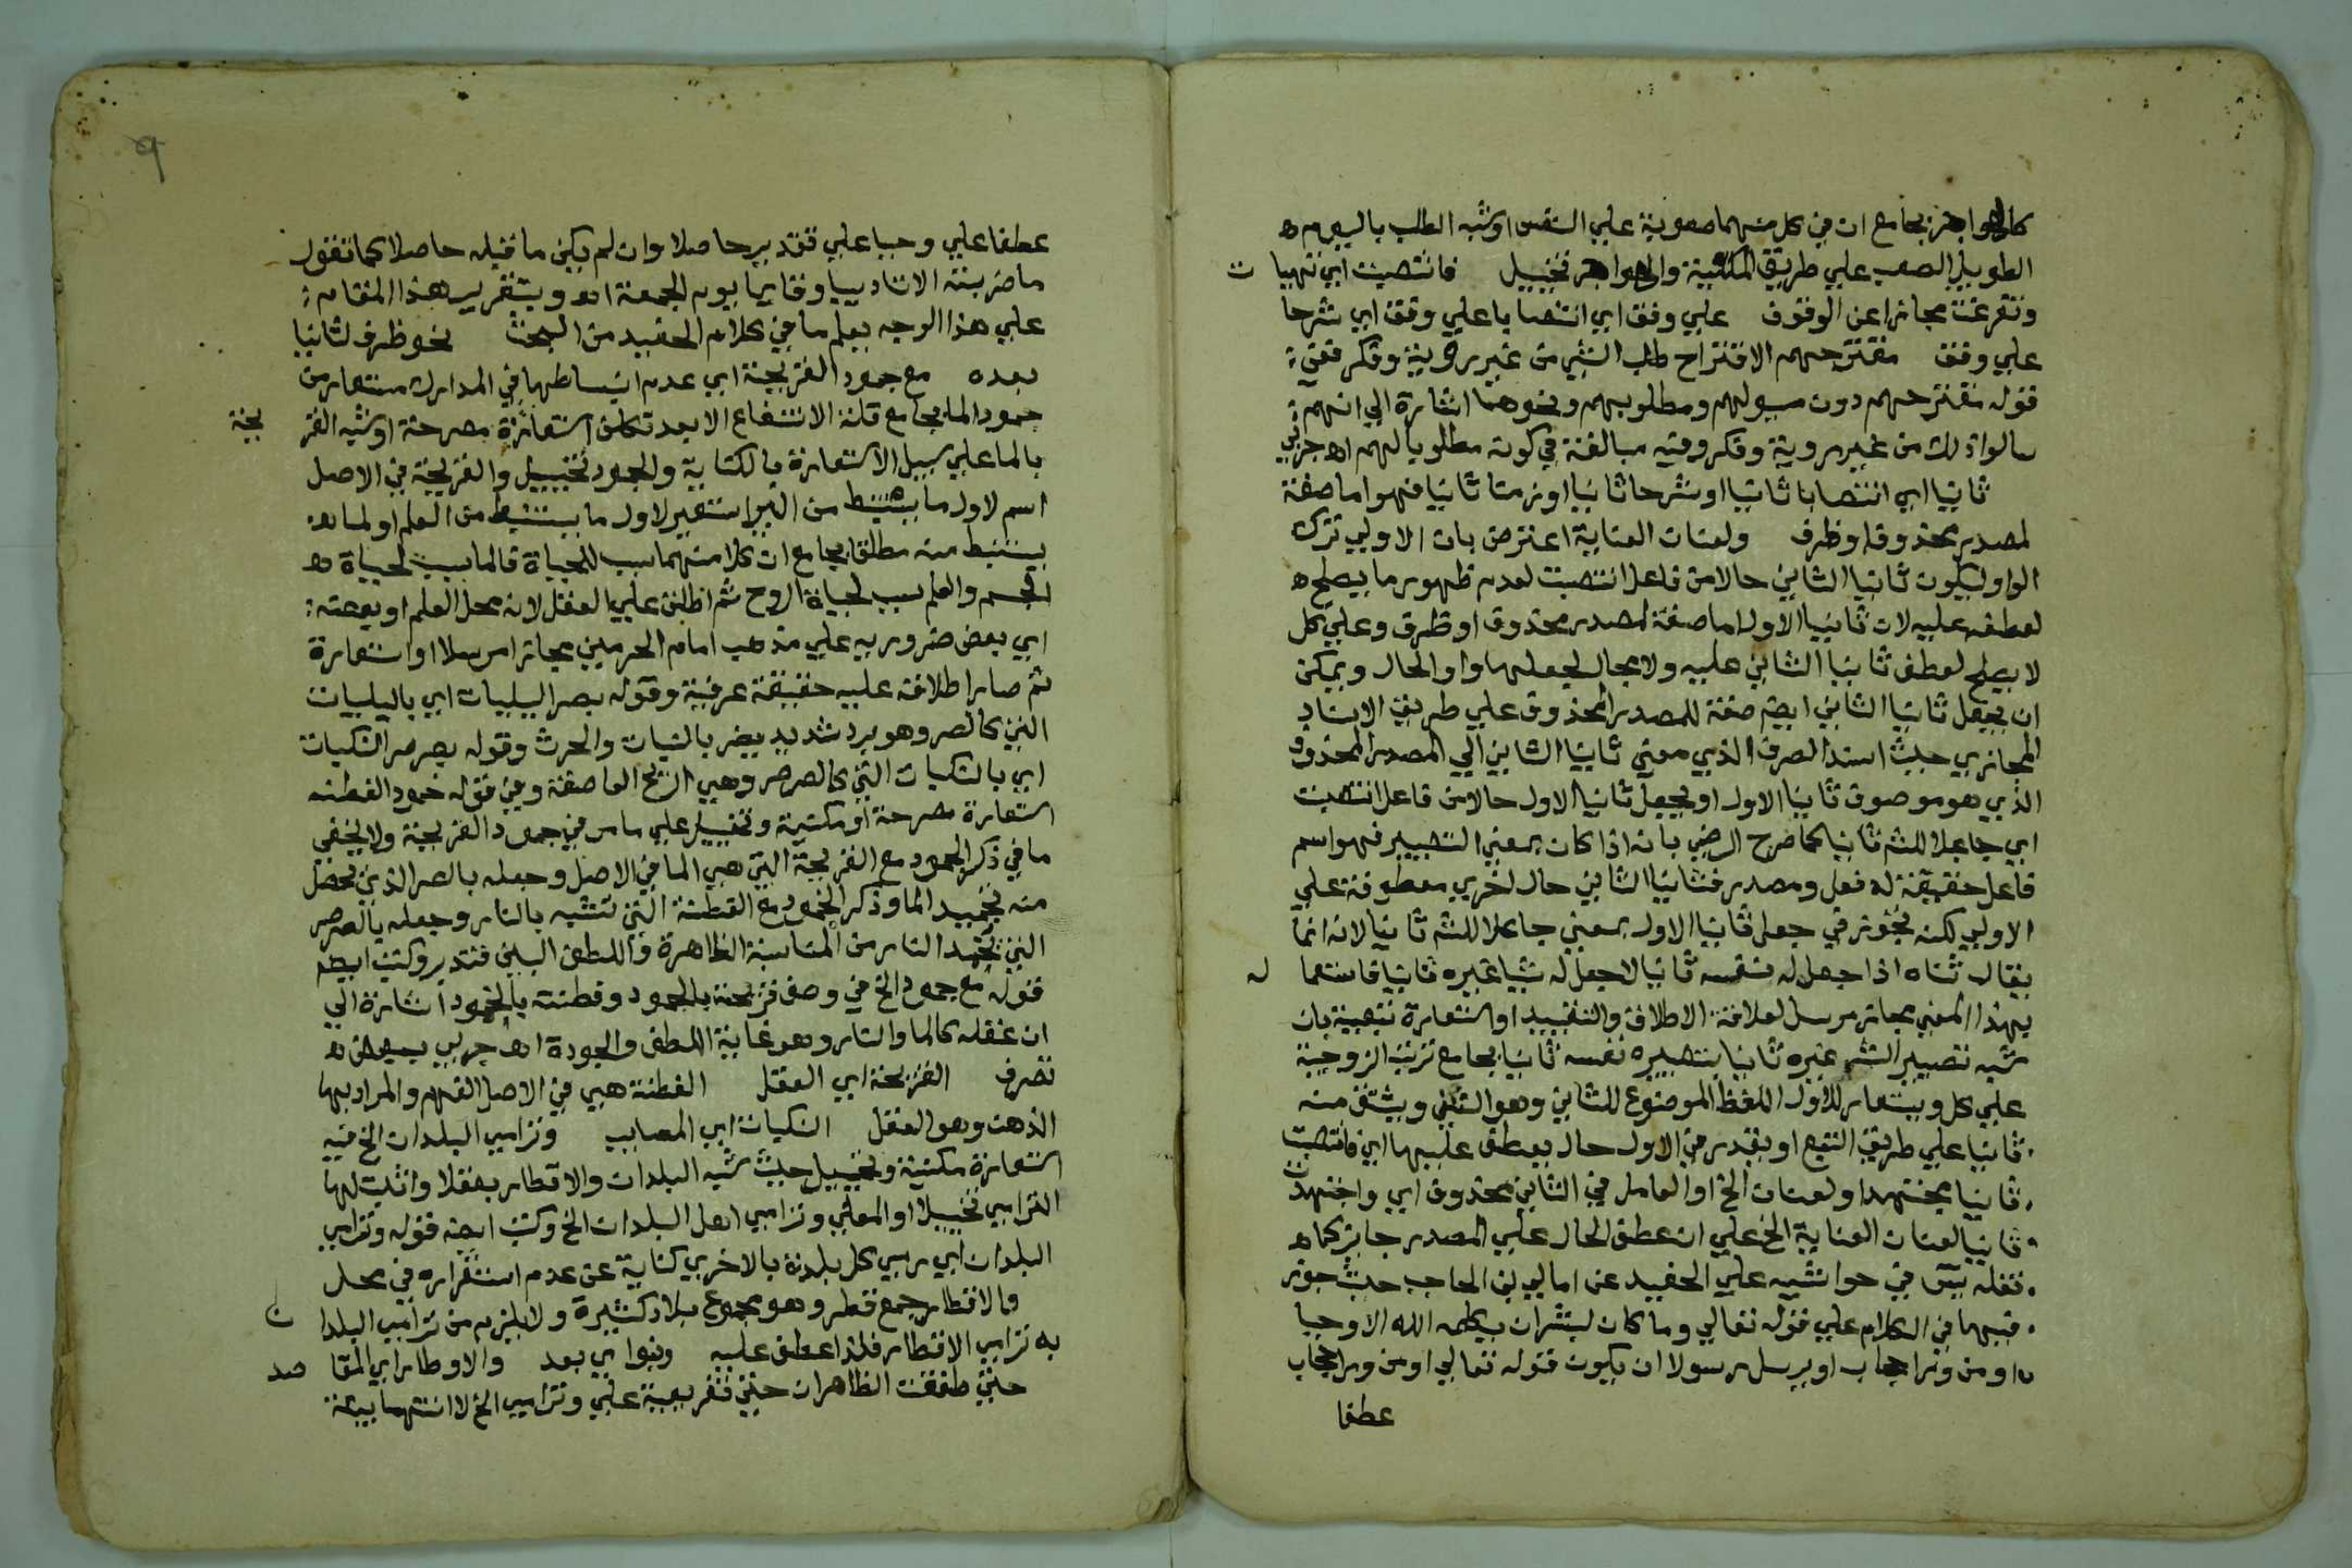 كالهواجر بجامع ان في كل منهما صعوبة علي النفس او شبه الطلب باليوم ه
الطويل الصعب علي طريق المكنية والهواجر تخييل فانتصبت اي تهيات
وتفرغت مجازا عن الوقوف علي وفق اي انتصابا علي وفق اي شرحا
علي وفق مقترحهم الاقتراح طلب الشي من غير روية وفكر فقي
قوله مقترحهم دون مسولهم ومطلوبهم ونحوهما اشارة الي انهم
سالوا ذلك من غير روية وفكر وفيه مبالغة في كونه مطلوبا لهم اه
ثانيا اي انتصابا ثانيا او شرحا ثانيا او زمنا ثانيا فهو اما صفة
لمصدر محذوف او ظرف ولعنان العناية اعترض بان الاولي ترك
الواو ليكون ثانيا الثاني حالا من فاعل انتصبت لعدم ظهور ما يصلح ه
لعطفه عليه لان ثانيا الاول اما صفة لمصدر محذوف او ظرف وعلي كل
لا يصلح لعطف ثانيا الثاني عليه ولا مجال لجعلها واو الحال ويمكن
ان يجعل ثانيا الثاني ايضا صفة للمصدر المحذوف علي طريق الاسناد
المجازي حيث اسند الصرف الذي معني ثانيا الثاني الي المصدر المحذوف
الذي هو موصوف ثانيا الاول او يجعل ثانيا الاول حالا من فاعل انتصبت
اي جاعلا للشي ثانيا كما صرح الرضي بانه اذا كان بمعني التصيير فهو اسم
فاعل حقيقة له فعل ومصدر فثانيا الثاني حال اخري معطوفة علي
الاولي لكنه تجوز في جعل ثانيا الاول بمعني جاعلا للشي ثانيا لانه انما
يقال ثناه اذا جعل له نفسه ثانيا لا جعل له شيا غيره ثانيا فاستعماله
بهذا المعني مجاز مرسل لعلاقة الاطلاق والتقييد او استعارة تبعية بان
شبه تصيير الشي غيره ثانيا بتصييره نفسه ثانيا بجامع ترتب الزوجية
علي كل ويستعار للاول اللفظ الموضوع للثاني وهو الثني ويشتق منه
ثانيا علي طريق التبع او يقدر في الاول حال يعطف عليها اي فانتصبت
ثانيا مجتهدا ولعنان الخ او العامل في الثاني محذوف اي واجتهدت
ثانيا لعنان العناية الخ علي ان عطف الحال علي المصدر جايز كما ه
نقله يس في حواشيه علي الحفيد عن امالي ابن الحاجب حيث جوز
فيها في الكلام علي قوله تعالي وما كان لبشر ان يكلمه الله الا وحيا
او من وراء حجاب او يرسل رسولا ان يكون قوله تعالي او من وراء حجاب
عطفا
عطفا علي وحيا علي تقدير حاصلا وان لم يكن ما قبله حاصلا كما تقول
ما ضربته الا تاديبا وقايما يوم الجمعة اه ويتقرير هذا المقام
علي هذا الوجه يعلم ما في كلام الحفيد من البحث نحو ظرف لثانيا
بعده مع جمود القريحة اي عدم انبساطها في المدارك مستعار من
جمود الما بجامع قلة الانتفاع الا بعد تكلف استعارة مصرحة او شبه القريحة
بالما علي سبيل الاستعارة بالكناية والجمود تخييل والقريحة في الاصل
اسم لاول ما يستنبط من البير استعير لاول ما يستنبط من العلم او لما
يستنبط منه مطلقا بجامع ان كلا منهما سبب للحياة فالما سبب لحياة ه
الجسم والعلم سبب لحياة الروح ثم اطلق علي العقل لانه محل العلم او بعضه
اي بعض ضروريه علي مذهب امام الحرمين مجازا مرسلا او استعارة
ثم صار اطلاقه عليه حقيقة عرفية وقوله بصر البليات اي بالبليات
التي كالصر وهو برد شديد يضر بالنبات والحرث وقوله بصرصر النكبات
اي بالنكبات التي كالصرصر وهي الريح العاصفة وفي قوله خمود الفطنه
استعارة مصرحة او مكنية وتخييل علي ما مر في جمود القريحة ولا يخفي
ما في ذكر الجمود مع القريحة التي هي الما في الاصل وجعله بالصر الذي يحصل
منه تجميد الما وذكر الخمود مع الفطنة التي تشبه بالنار وجعله بالصرصر
التي تخمد النار من المناسبة الظاهرة واللطف البين فتدبر وكتب ايضا
قوله مع جمود الخ في وصف قريحته بالجمود وفطنته بالخمود اشارة الي
ان عقله كالما والنار وهو غاية اللطف والجودة اه ببعض ه
تصرف القريحة اي العقل الفطنة هي في الاصل الفهم والمراد بها
الذهن وهو العقل النكبات اي المصايب وترامي البلدان الخ فيه
استعارة مكنية وتخييل حيث شبه البلدان والاقطار بعقلا واثبت لها
الترامي تخييلا او المعني وترامي اهل البلدان الخ وكتب ايضا قوله وترامي
البلدان اي رمي كل بلدة بالاخري كناية عن عدم استقراره في محل
والاقطار جمع قطر وهو مجموع بلاد كثيرة ولا يلزم من ترامي البلدان
به ترامي الاقطار فلذا عطف عليه ونبوا بي بعد والاوطار اي المقاصد
حتي طفقت الظاهر ان حتي تفريعية علي وترامي الخ لا انتهايية